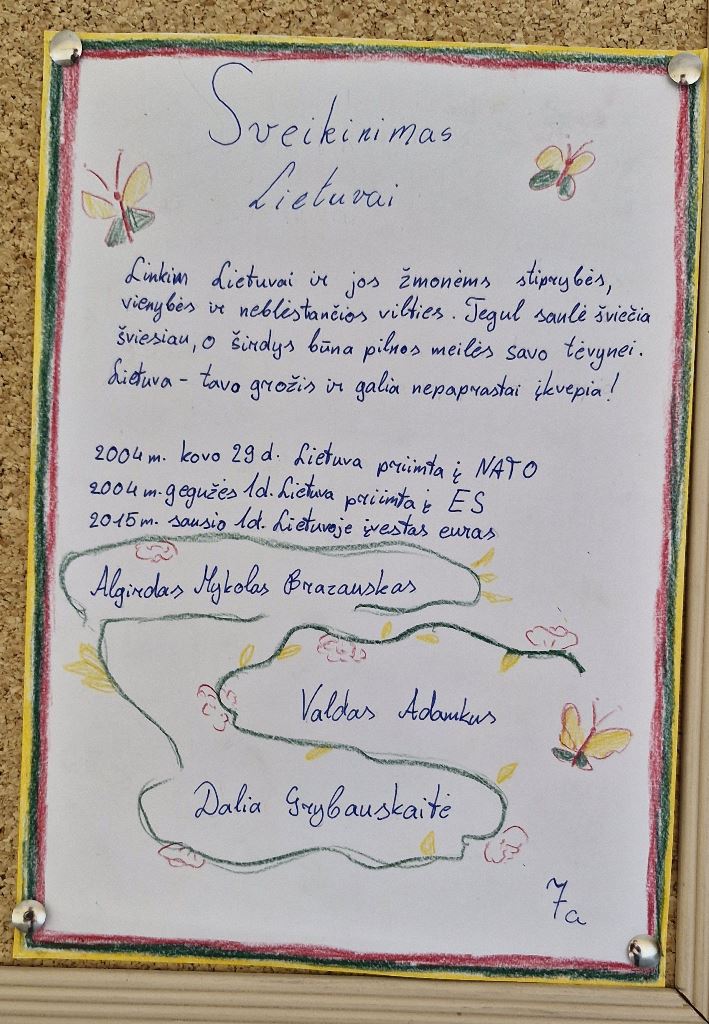 Sveikinimas
Lietuvai
Linkim Lietuvai ir jos žmonėms stiprybės,
vienybės ir neblėstančios vilties. Tegul saulė šviečia
šviesiau, o širdys būna pilnos meilės savo tėvynei.
Lietuva - tavo grožis ir galia nepaprastai įkvepia!
2004 m. kovo 29 d. Lietuva priimta į NATO
2004 m. gegužės 1d. Lietuva priimta į ES
2015 m. sausio 1d. Lietuvoje įvestas euras
Algirdas Mykolas Brazauskas
Valdas Adamkus
Dalia Grybauskaitė
7a